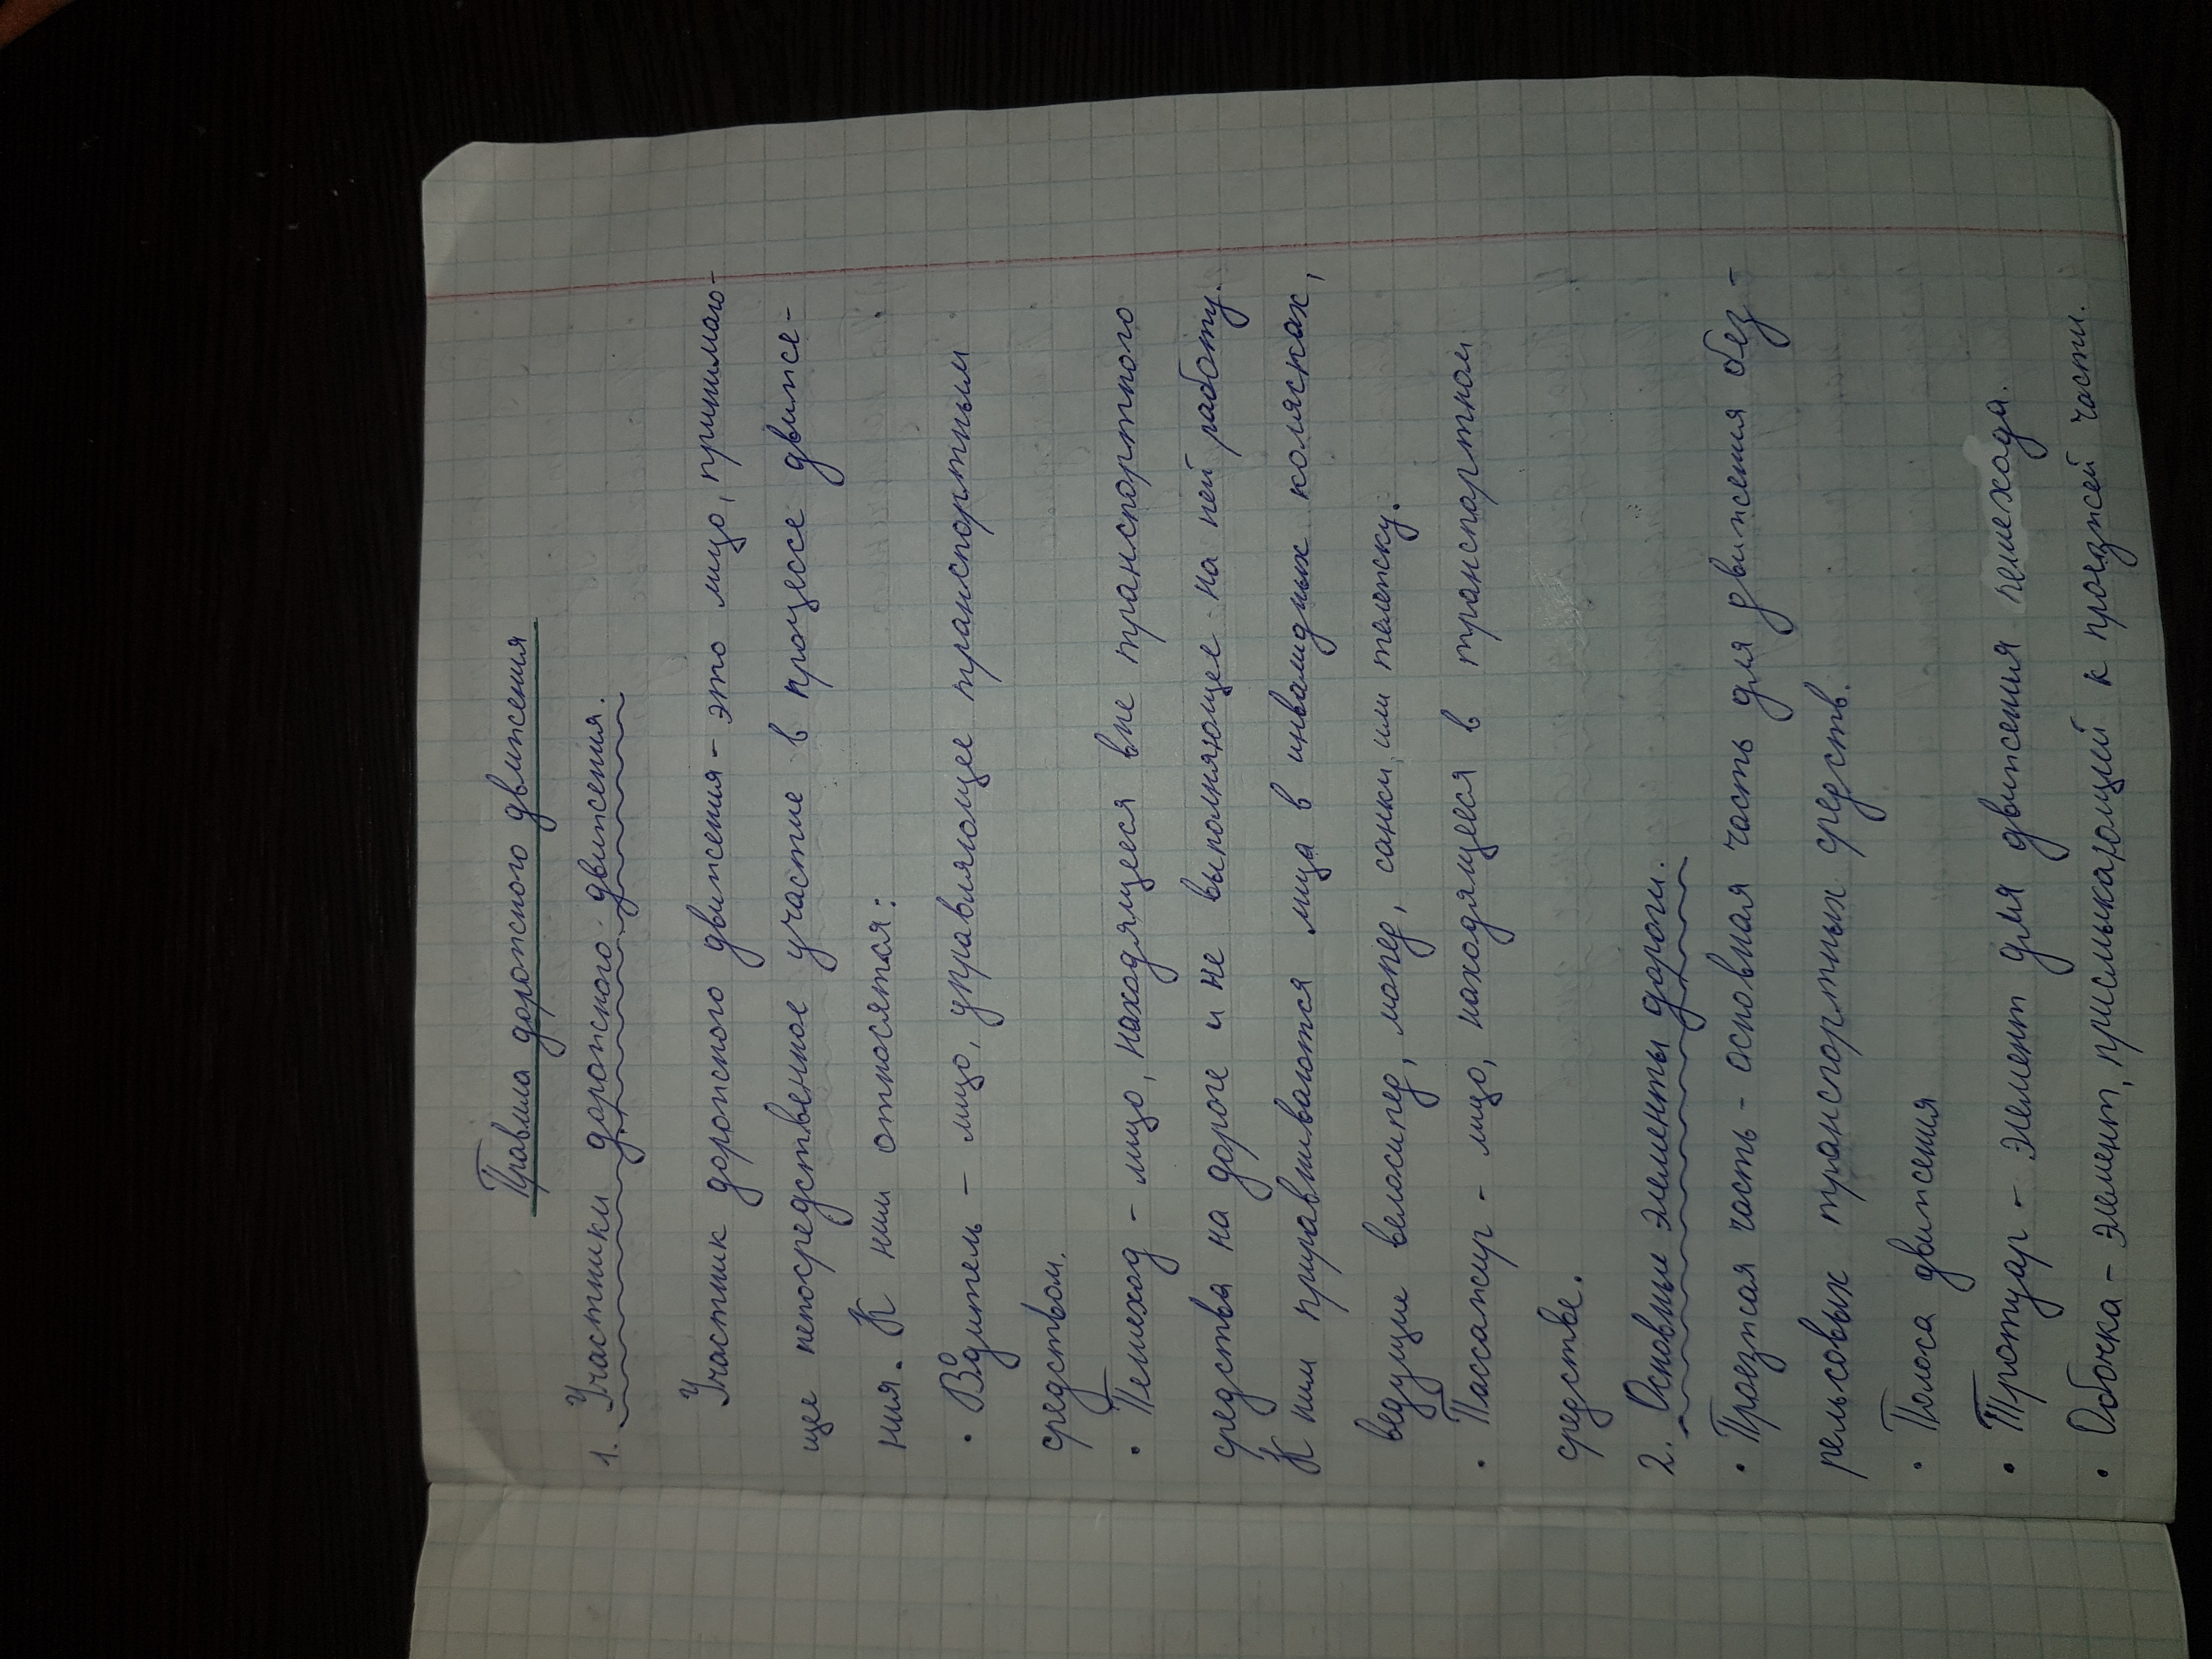 Правила дорожного движения
1. Участники дорожного движения.
Участник дорожного движения - это лицо, принимаю-
щее непосредственное участие в процессе движе-
ния. К ним относятся:
• Водитель - лицо, управляющее транспортным
средством.
• Пешеход - лицо, находящееся вне транспортного
средства на дороге и не выполняющее на ней работу.
К ним приравниваются лица в инвалидных колясках,
ведущие велосипед, мопед, санки, или тележку.
• Пассажир - лицо, находящееся в транспортном
средстве.
2. Основные элементы дороги.
• Проезжая часть - основная часть для движения без-
рельсовых транспортных средств.
• Полоса движения
• Тротуар - элемент для движения пешехода.
• Обочка - элемент, присмыкающий к проезжей части.